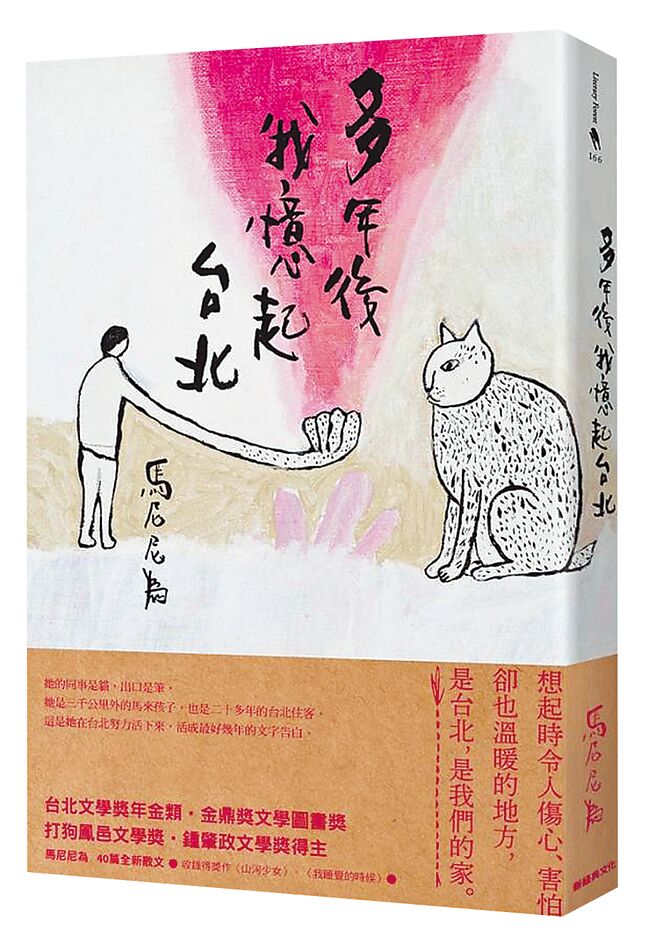 多年後
我憶起
台北
馬尼尼為
想起時令人傷心、害怕
卻也溫暖的地方,
是台北,是我們的家。
她的同事是貓,出口是筆。
她是三千公里外的馬來孩子,也是二十多年的台北住客。
這是她在台北努力活下來,活成最好幾年的文字告白。
台北文學獎年金類・金鼎獎文學圖書獎
打狗鳳邑文學獎・鍾肇政文學獎得主
馬尼尼為 40篇全新散文 ● 收錄得獎作〈山河少女〉、〈我睡覺的時候〉●
Literary Forest
166
多年後我憶起台北
馬尼尼為
新經典文化